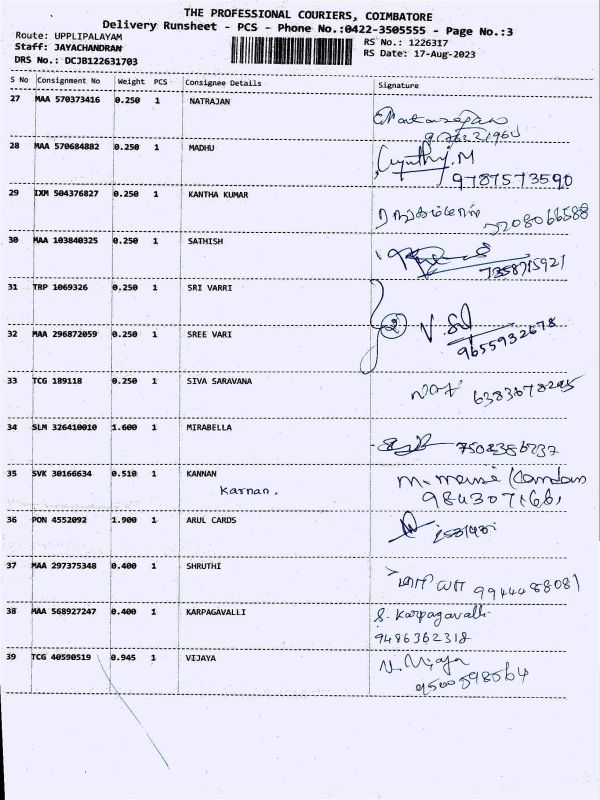 THE PROFESSIONAL COURIERS, COIMBATORE
Delivery Runsheet - PCS - Phone No.:0422-3505555 - Page No.:3
Route: UPPLIPALAYAM
Staff: JAYACHANDRAN
DRS No.: DCJB122631703
RS No.: 1226317
RS Date: 17-Aug-2023
S No Consignment No Weight PCS Consignee Details Signature
27 MAA 570373416 0.250 1 NATRAJAN
28 MAA 570684882 0.250 1 MADHU
M
9787573590
29 IXM 504376827 0.250 1 KANTHA KUMAR
7208066588
30 MAA 103840325 0.250 1 SATHISH
7358715921
31 TRP 1069326 0.250 1 SRI VARRI
2
32 MAA 296872059 0.250 1 SREE VARI
9655932678
33 TCG 189118 0.250 1 SIVA SARAVANA
34 SLM 326410010 1.600 1 MIRABELLA
35 SVK 30166634 0.510 1 KANNAN
Karnan.
36 PON 4552092 1.900 1 ARUL CARDS
37 MAA 297375348 0.400 1 SHRUTHI
9944488081
38 MAA 568927247 0.400 1 KARPAGAVALLI
S. Karpagavalli
9486362318
39 TCG 40590519 0.945 1 VIJAYA
9500598064